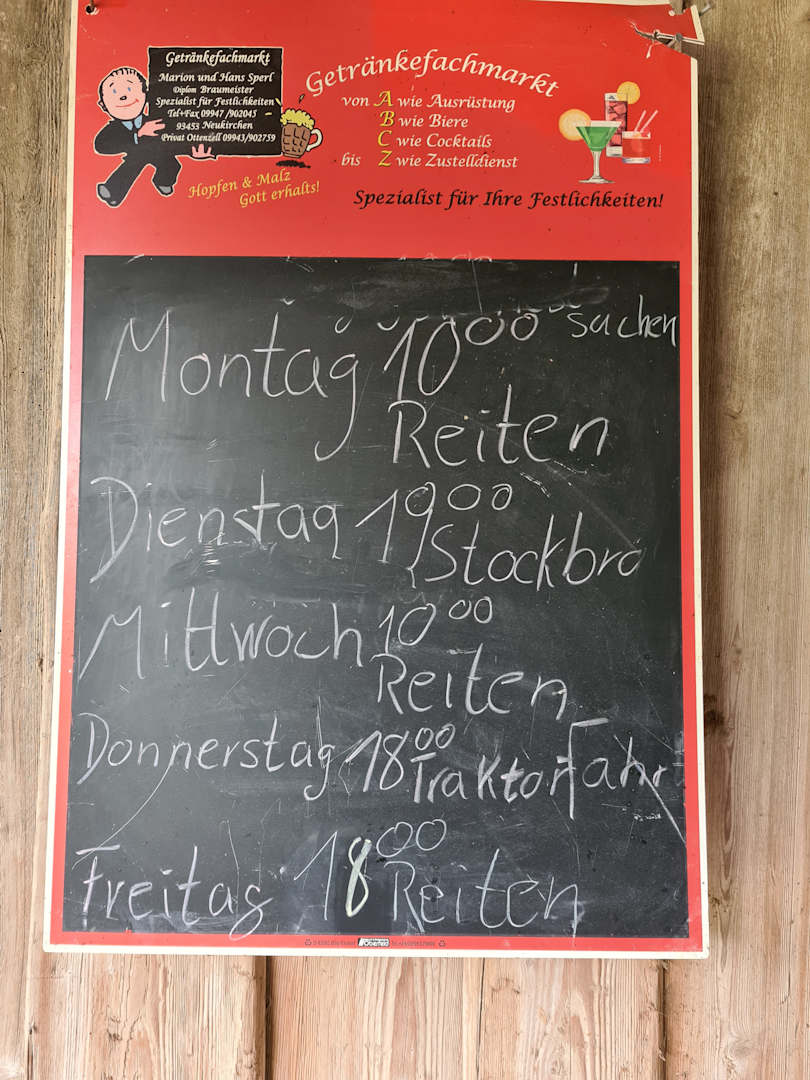 Getränkefachmarkt
Marion und Hans Sperl
Diplom Braumeister
Spezialist für Festlichkeiten
Tel+Fax 09947 /902045
93453 Neukirchen
Privat Ottenzell 09943/902759
Hopfen & Malz
Gott erhalts!
Getränkefachmarkt
von A wie Ausrüstung
B wie Biere
C wie Cocktails
bis Z wie Zustelldienst
Spezialist für Ihre Festlichkeiten!
Montag 10 00 suchen
Reiten
Dienstag 19 00
Stockbro
Mittwoch 10 00
Reiten
Donnerstag 18 00
Traktorfahr
Freitag 18 00
Reiten